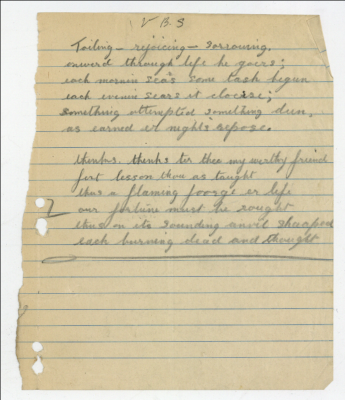 V B S
Toiling - rejoicing - sorrowing.
onwerd through life he goers;
each mornin sea's some task begun
each evenin sears it cloese;
something attempted something deen,
as earned er nights' repose.
thenks. thenks ter thee my worthy friend
fert lesson thou as taught
thus a flaming foorge er life
our fortune must be rought
thus on its sounding anvil shaaped
each burning deed and thought